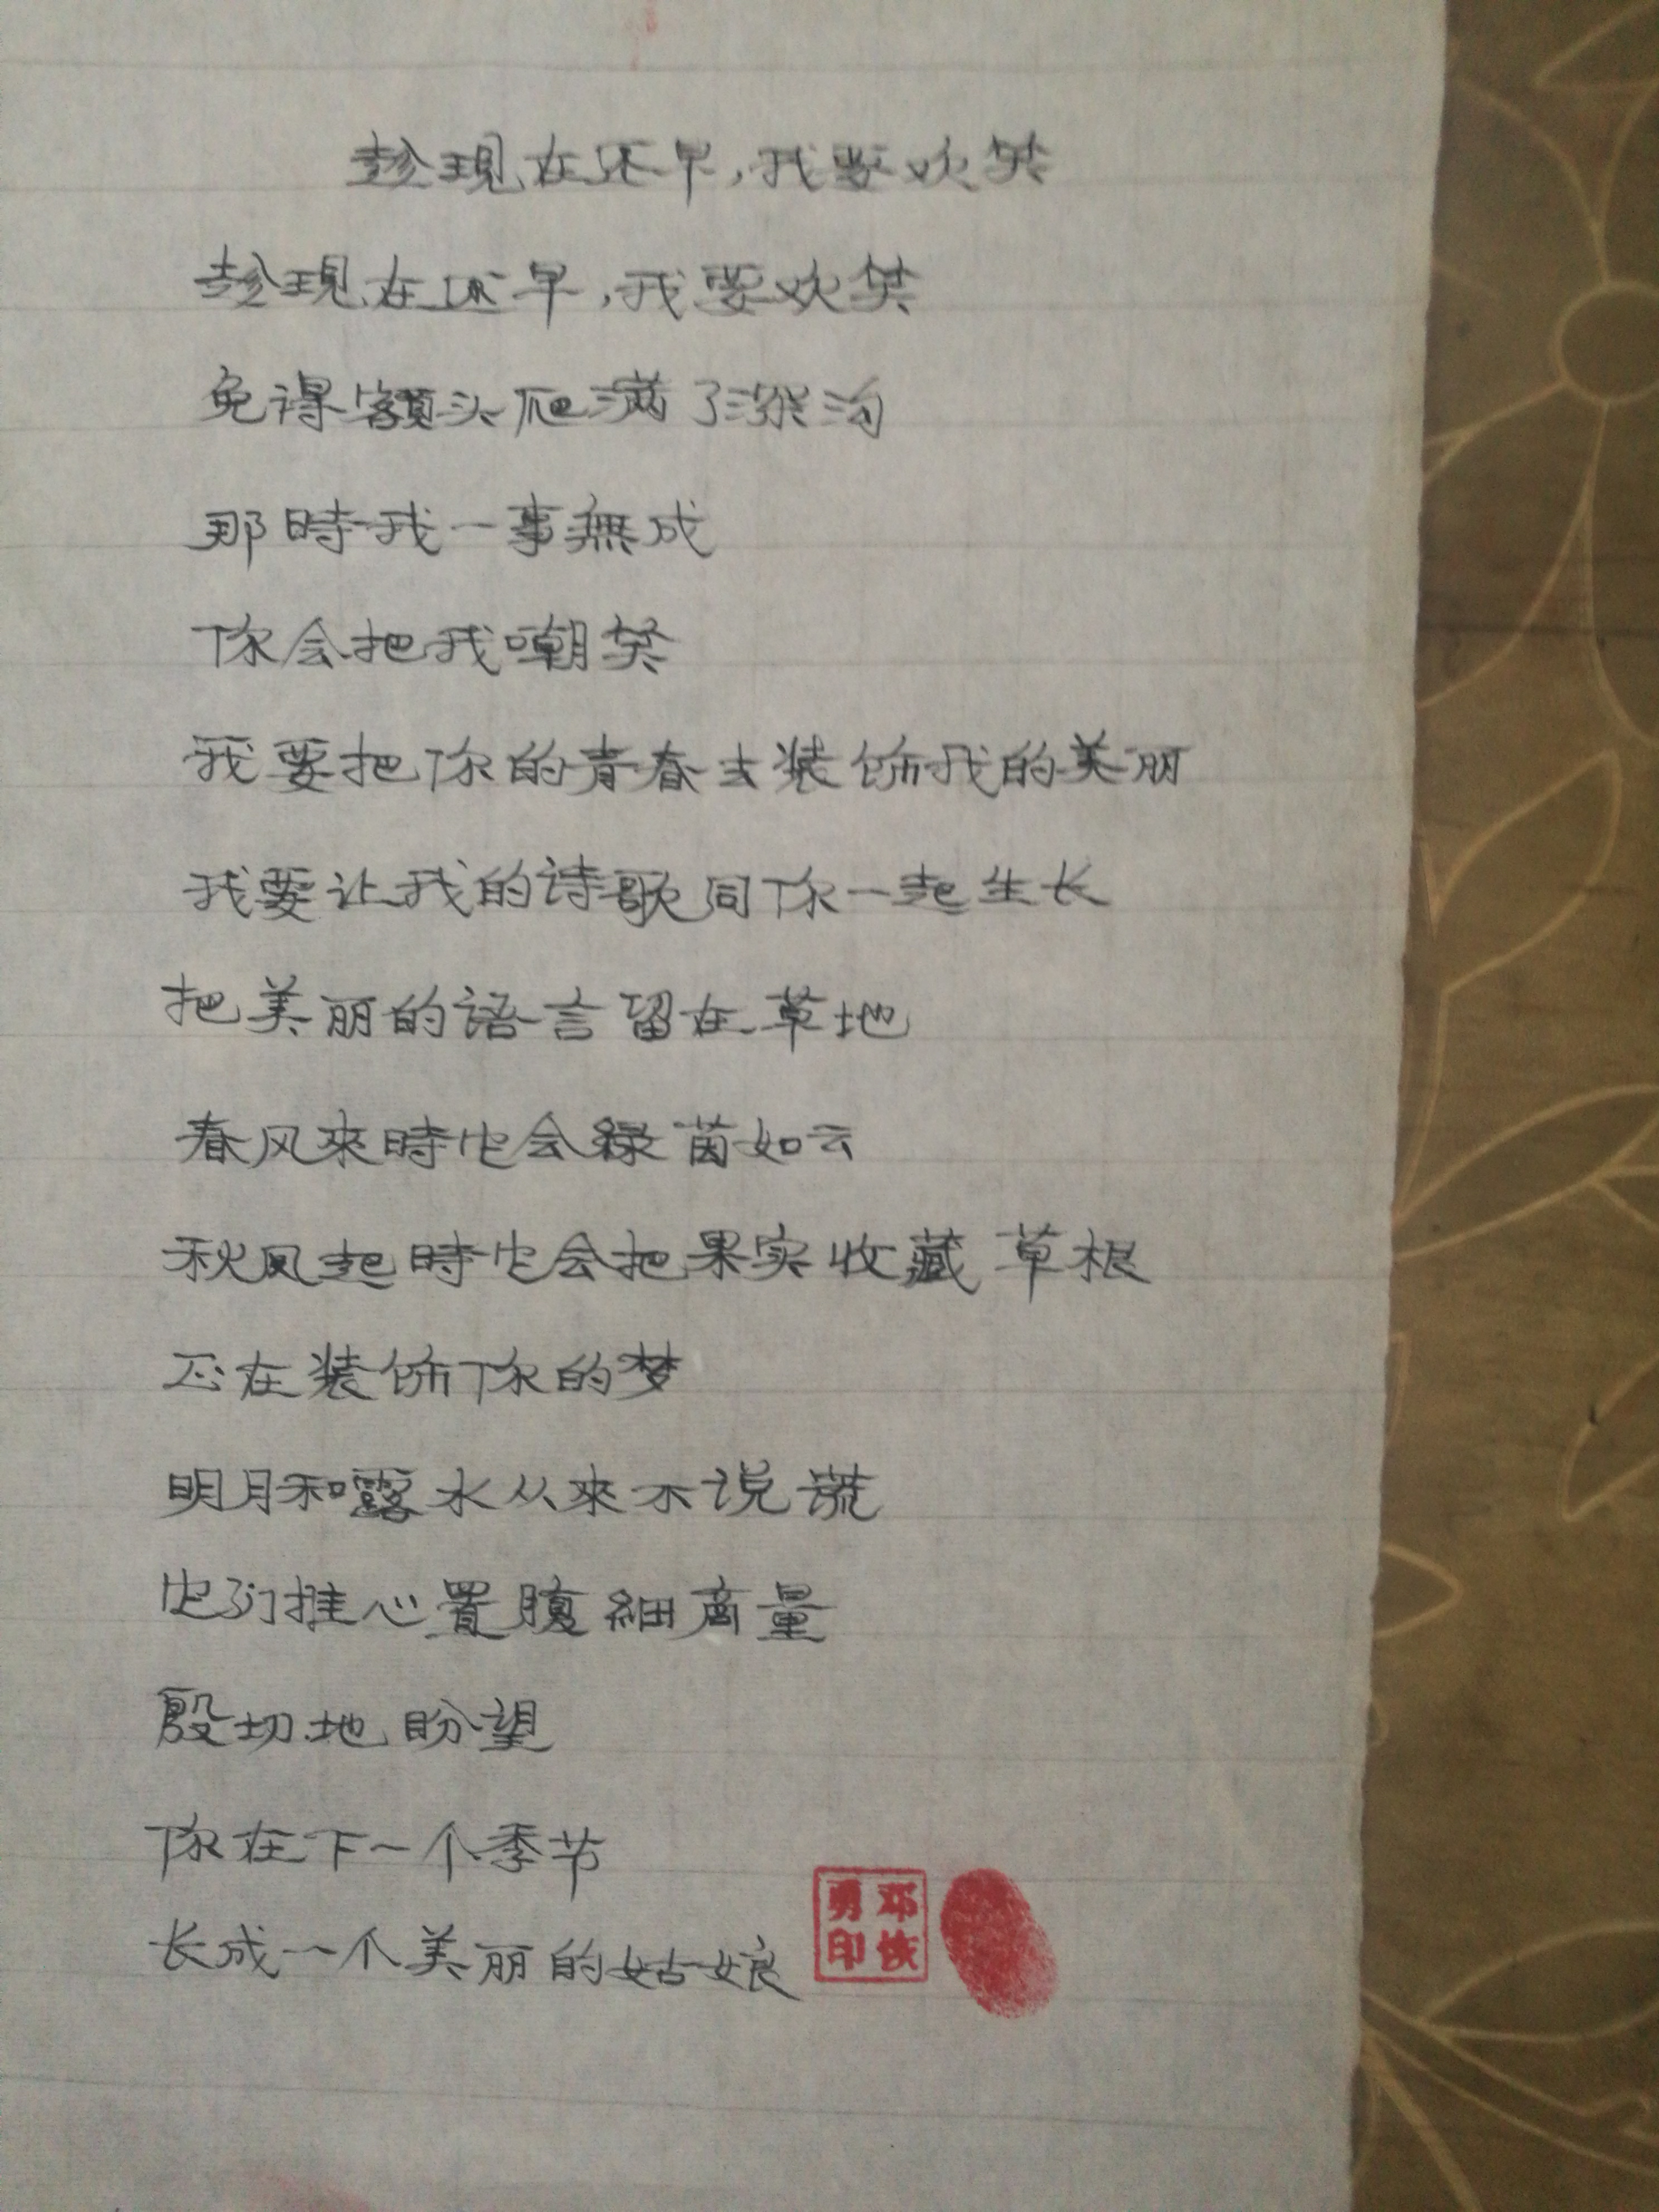 趁現在还早，我要欢笑
趁現在还早，我要欢笑
免得額头爬满了深沟
那時我一事無成
你会把我嘲笑
我要把你的青春去装饰我的美丽
我要让我的詩歌同你一起生长
把美丽的語言留在草地
春风來時它会綠茵如云
秋风起時它会把果实收藏草根
还在装饰你的梦
明月和露水从來不说谎
它们推心置腹細商量
殷切地盼望
你在下一个季节
长成一个美丽的姑娘
邓恢勇印